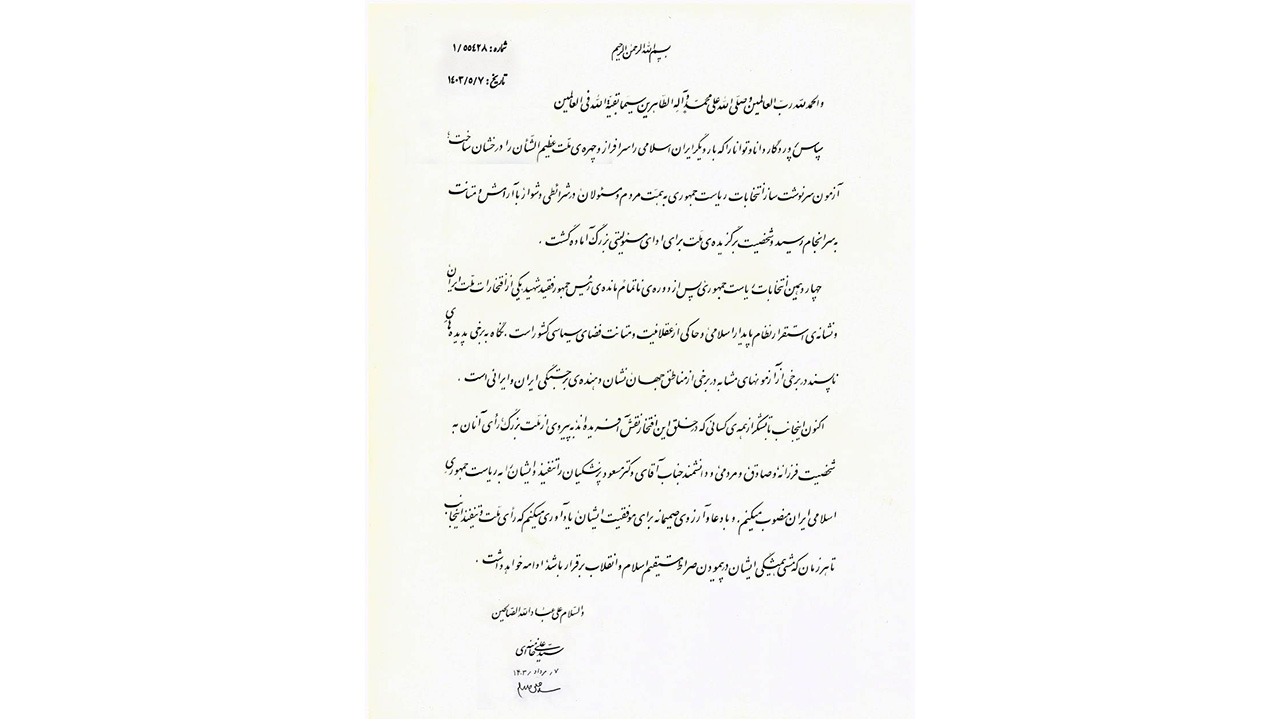 بسم الله الرحمن الرحیم
شماره: ۱/۵۵۴۲۸
تاریخ: ۱۴۰۳/۵/۷
والحمد لله رب العالمین و صلّی الله علی محمّد و آله الطّاهرین سیّما بقیّة الله فی العالمین
سپاس پروردگار دانا و توانا را که بار دیگر ایران اسلامی را سرافراز و چهره‌ی ملّت عظیم الشّأن را درخشان ساخت؛
آزمون سرنوشت ساز انتخابات ریاست جمهوری به همّت مردم و مسئولان در شرائطی دشوار با آرامش و متانت
به سرانجام رسید و شخصیت برگزیده‌ی ملّت برای ادای مسئولیتی بزرگ آماده گشت .
چهاردهمین انتخابات ریاست جمهوری پس از دوره‌ی ناتمام مانده‌ی رئیس جمهور فقید شهید یکی از افتخارات ملّت ایران
و نشانه‌ی استقرار نظام پایدار اسلامی و حاکی از عقلانیت و متانت فضای سیاسی کشور است . نگاه به برخی پدیده‌های
ناپسند در برخی از آزمونهای مشابه در برخی از مناطق جهان نشان دهنده‌ی برجستگی ایران و ایرانی است .
اکنون اینجانب با تشکّر از همه‌ی کسانی که در خلق این افتخار نقش آفریده‌اند به پیروی از ملّت بزرگ رأی آنان به
شخصیت فرزانه و صادق و مردمی و دانشمند جناب آقای دکتر مسعود پزشکیان را تنفیذ و ایشان را به ریاست جمهوری
اسلامی ایران منصوب میکنم. و با دعا و آرزوی صمیمانه برای موفقیت ایشان یادآوری میکنم که رأی ملّت و تنفیذ اینجانب
تا هر زمان که مشی همیشگی ایشان در پیمودن صراط مستقیم اسلام و انقلاب برقرار باشد ادامه خواهد داشت .
والسّلام علی عباد الله الصّالحین
سیّد علی خامنه‌ای
۷/مرداد/۱۴۰۳